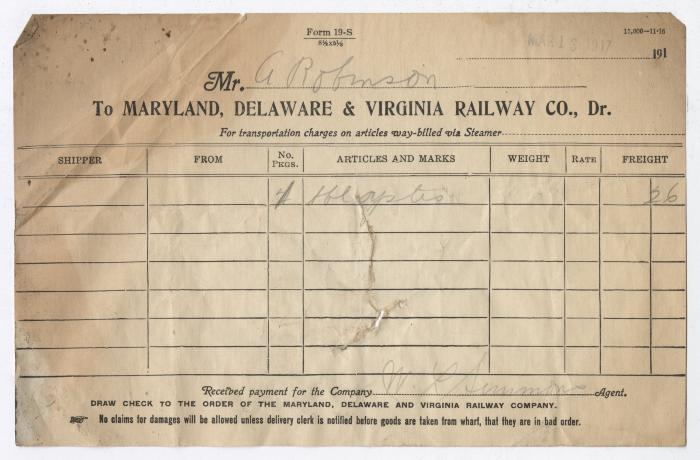 Form 19-S
8½x5½
15,000—11-16
MAR 13 1917
191
Mr. A Robinson
To MARYLAND, DELAWARE & VIRGINIA RAILWAY CO., Dr.
For transportation charges on articles way-billed via Steamer
SHIPPER FROM No. PKGS. ARTICLES AND MARKS WEIGHT RATE FREIGHT
1 26
Received payment for the Company W. Simmons Agent.
DRAW CHECK TO THE ORDER OF THE MARYLAND, DELAWARE AND VIRGINIA RAILWAY COMPANY.
No claims for damages will be allowed unless delivery clerk is notified before goods are taken from wharf, that they are in bad order.